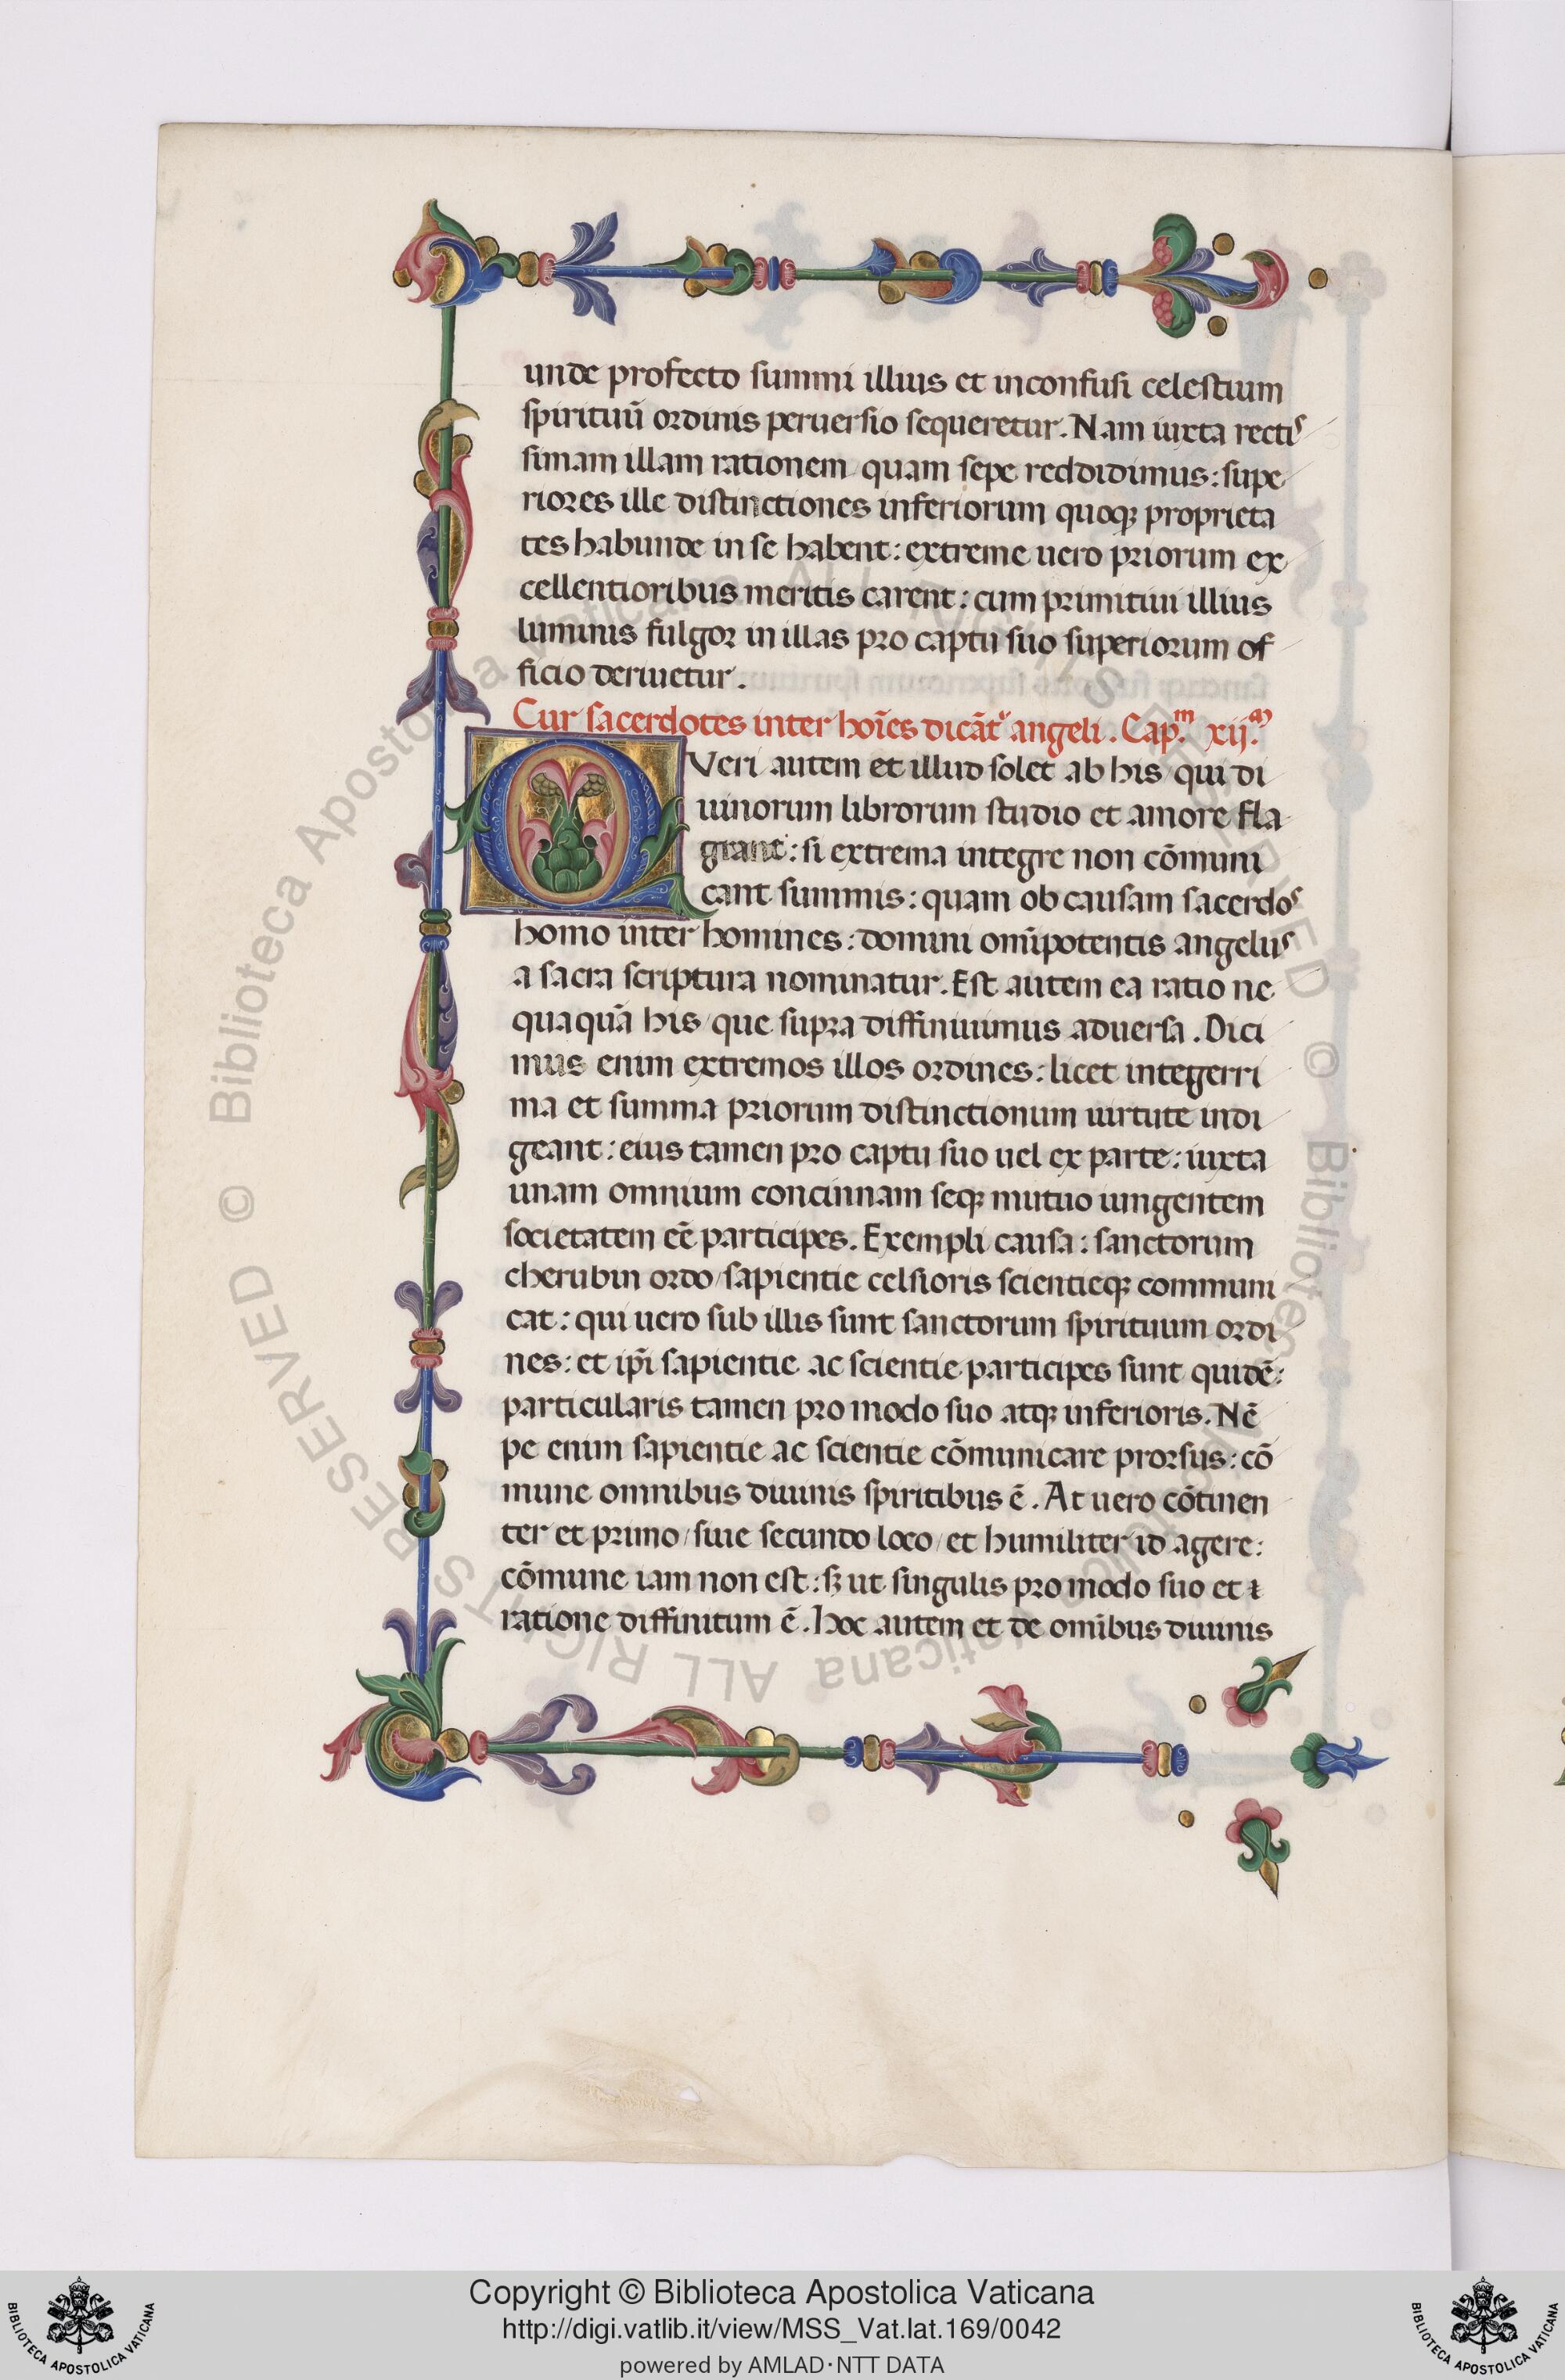 unde profecto summi illius et inconfusi celestium
spirituū ordinis peruersio sequeretur. Nam iuxta rectis
simam illam rationem quam sepe reddidimus: supe
riores ille distinctiones inferiorum quoqꝫ proprieta
tes habunde in se habent: extreme uero priorum ex
cellentioribus meritis carent: cum primitiui illius
luminis fulgor in illas pro captu suo superiorum of
ficio deriuetur.
Cur sacerdotes inter hoīes dicāt᷑ angeli. Cap.ᵐ xij.ᵐ
Q Veri autem et illud solet ab his qui di
uinorum librorum studio et amore fla
grant: si extrema integre non cōmuni
cant summis: quam ob causam sacerdos
homo inter homines: domini om̄ipotentis angelus
a sacra scriptura nominatur. Est autem ea ratio ne
quaquā his que supra diffiniuimus aduersa. Dici
mus enim extremos illos ordines: licet integerri
ma et summa priorum distinctionum uirtute indi
geant: eius tamen pro captu suo uel ex parte: iuxta
unam omnium concinnam seqꝫ mutuo iungentem
societatem eē participes. Exempli causa: sanctorum
cherubin ordo/sapientie celsioris scientieqꝫ communi
cat: qui uero sub illis sunt sanctorum spirituum ordi
nes: et ip̄i sapientie ac scientie participes sunt quidē:
particularis tamen pro modo suo atqꝫ inferioris. Nē
pe enim sapientie ac scientie cōmunicare prorsus: cō
mune omnibus diuinis spiritibus ē. At uero cōtinen
ter et primo/siue secundo loco/et humiliter id agere:
cōmune iam non est: sꝫ ut singulis pro modo suo et
ratione diffinitum ē. hoc autem et de om̄ibus diuinis
© Biblioteca Apostolica Vaticana ALL RIGHTS RESERVED © Biblioteca Apostolica Vaticana ALL RIGHTS RESERVED
Copyright © Biblioteca Apostolica Vaticana
http://digi.vatlib.it/view/MSS_Vat.lat.169/0042
powered by AMLAD·NTT DATA
BIBLIOTECA APOSTOLICA VATICANA
BIBLIOTECA APOSTOLICA VATICANA